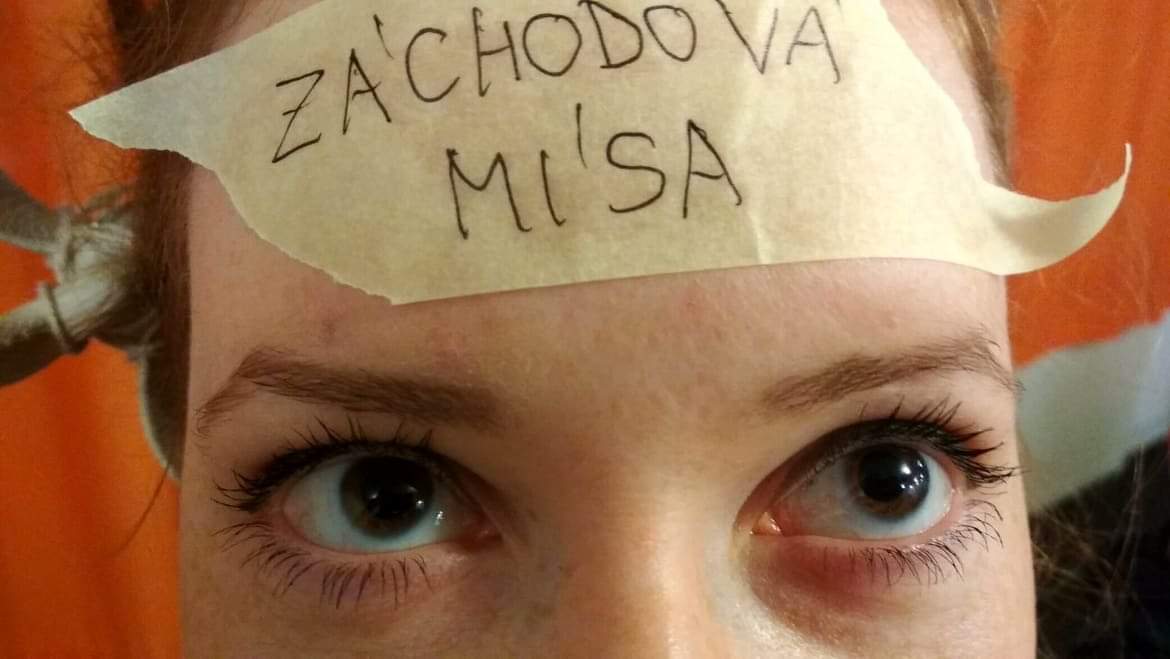 ZÁCHODOVÁ
MÍSA